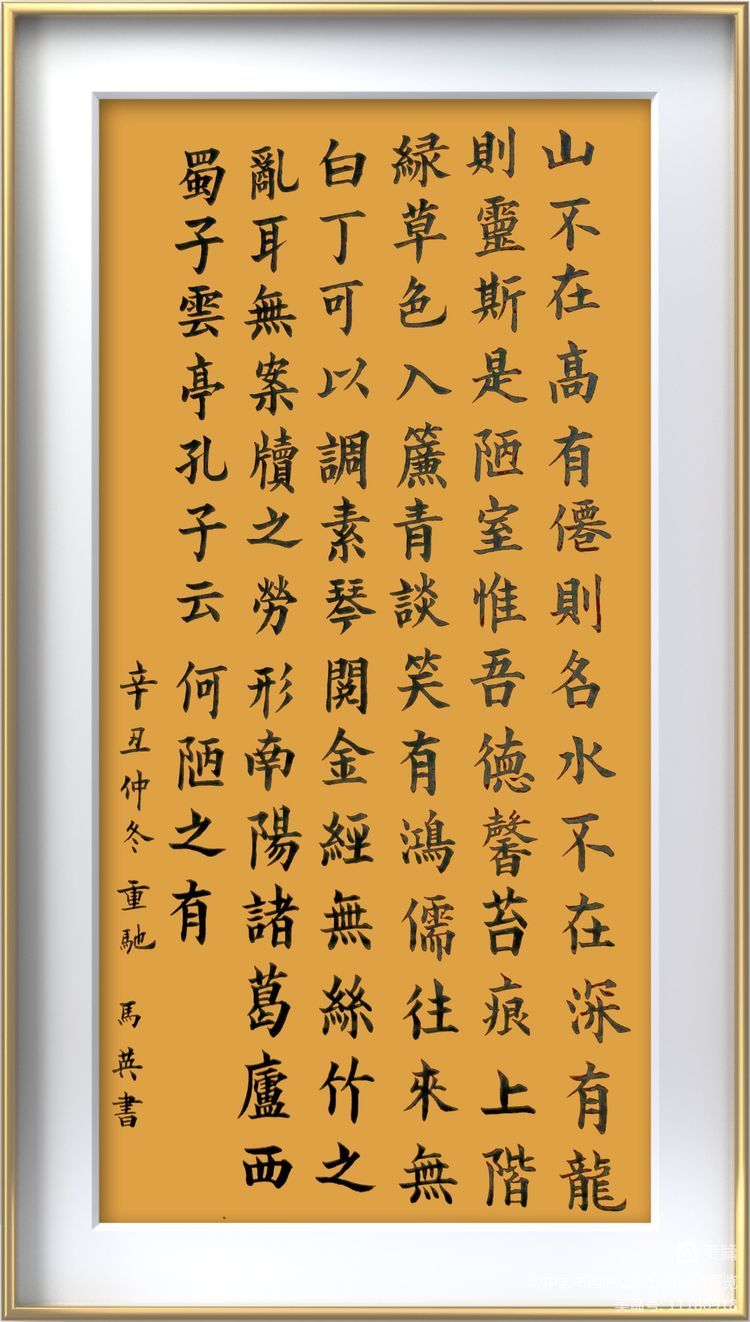 山不在高有僊則名水不在深有龍
則靈斯是陋室惟吾德馨苔痕上階
緑草色入簾青談笑有鴻儒往來無
白丁可以調素琴閱金經無絲竹之
亂耳無案牘之勞形南陽諸葛廬西
蜀子雲亭孔子云何陋之有
辛丑仲冬重馳 馬英書
美篇